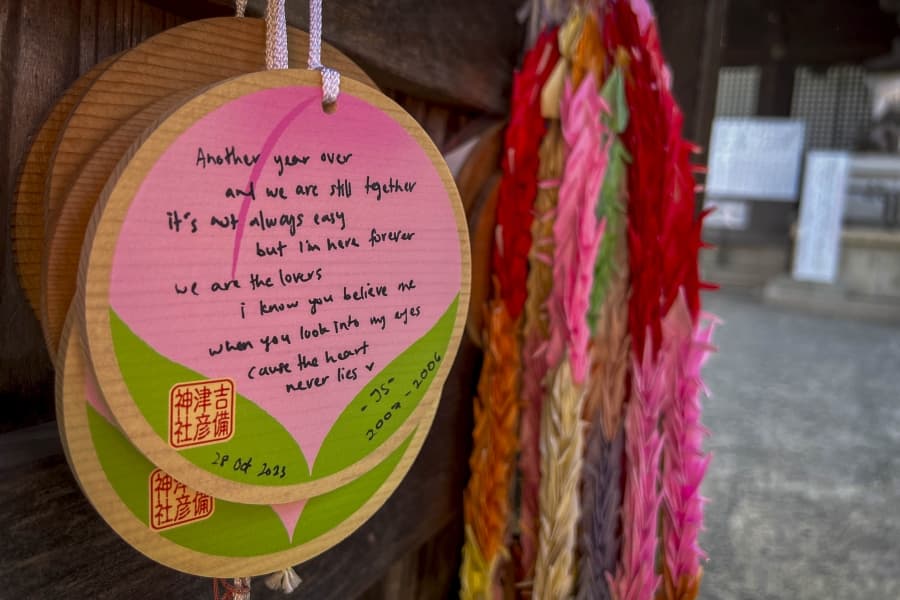 Another year over
and we are still together
it's not always easy
but I'm here forever
we are the lovers
i know you believe me
when you look into my eyes
cause the heart
never lies ♥
- JS -
2007 - 2006
28 Oct 2023
吉備
津彦
神社
備
津彦
神社